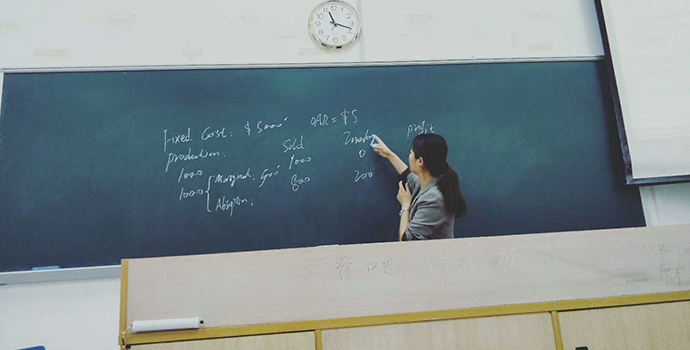 Fixed Cost: $5000 OAR = $5
production: Sold Inventory profit
1000 1000 0
1000 { Marginal: 800 200
Absorption: